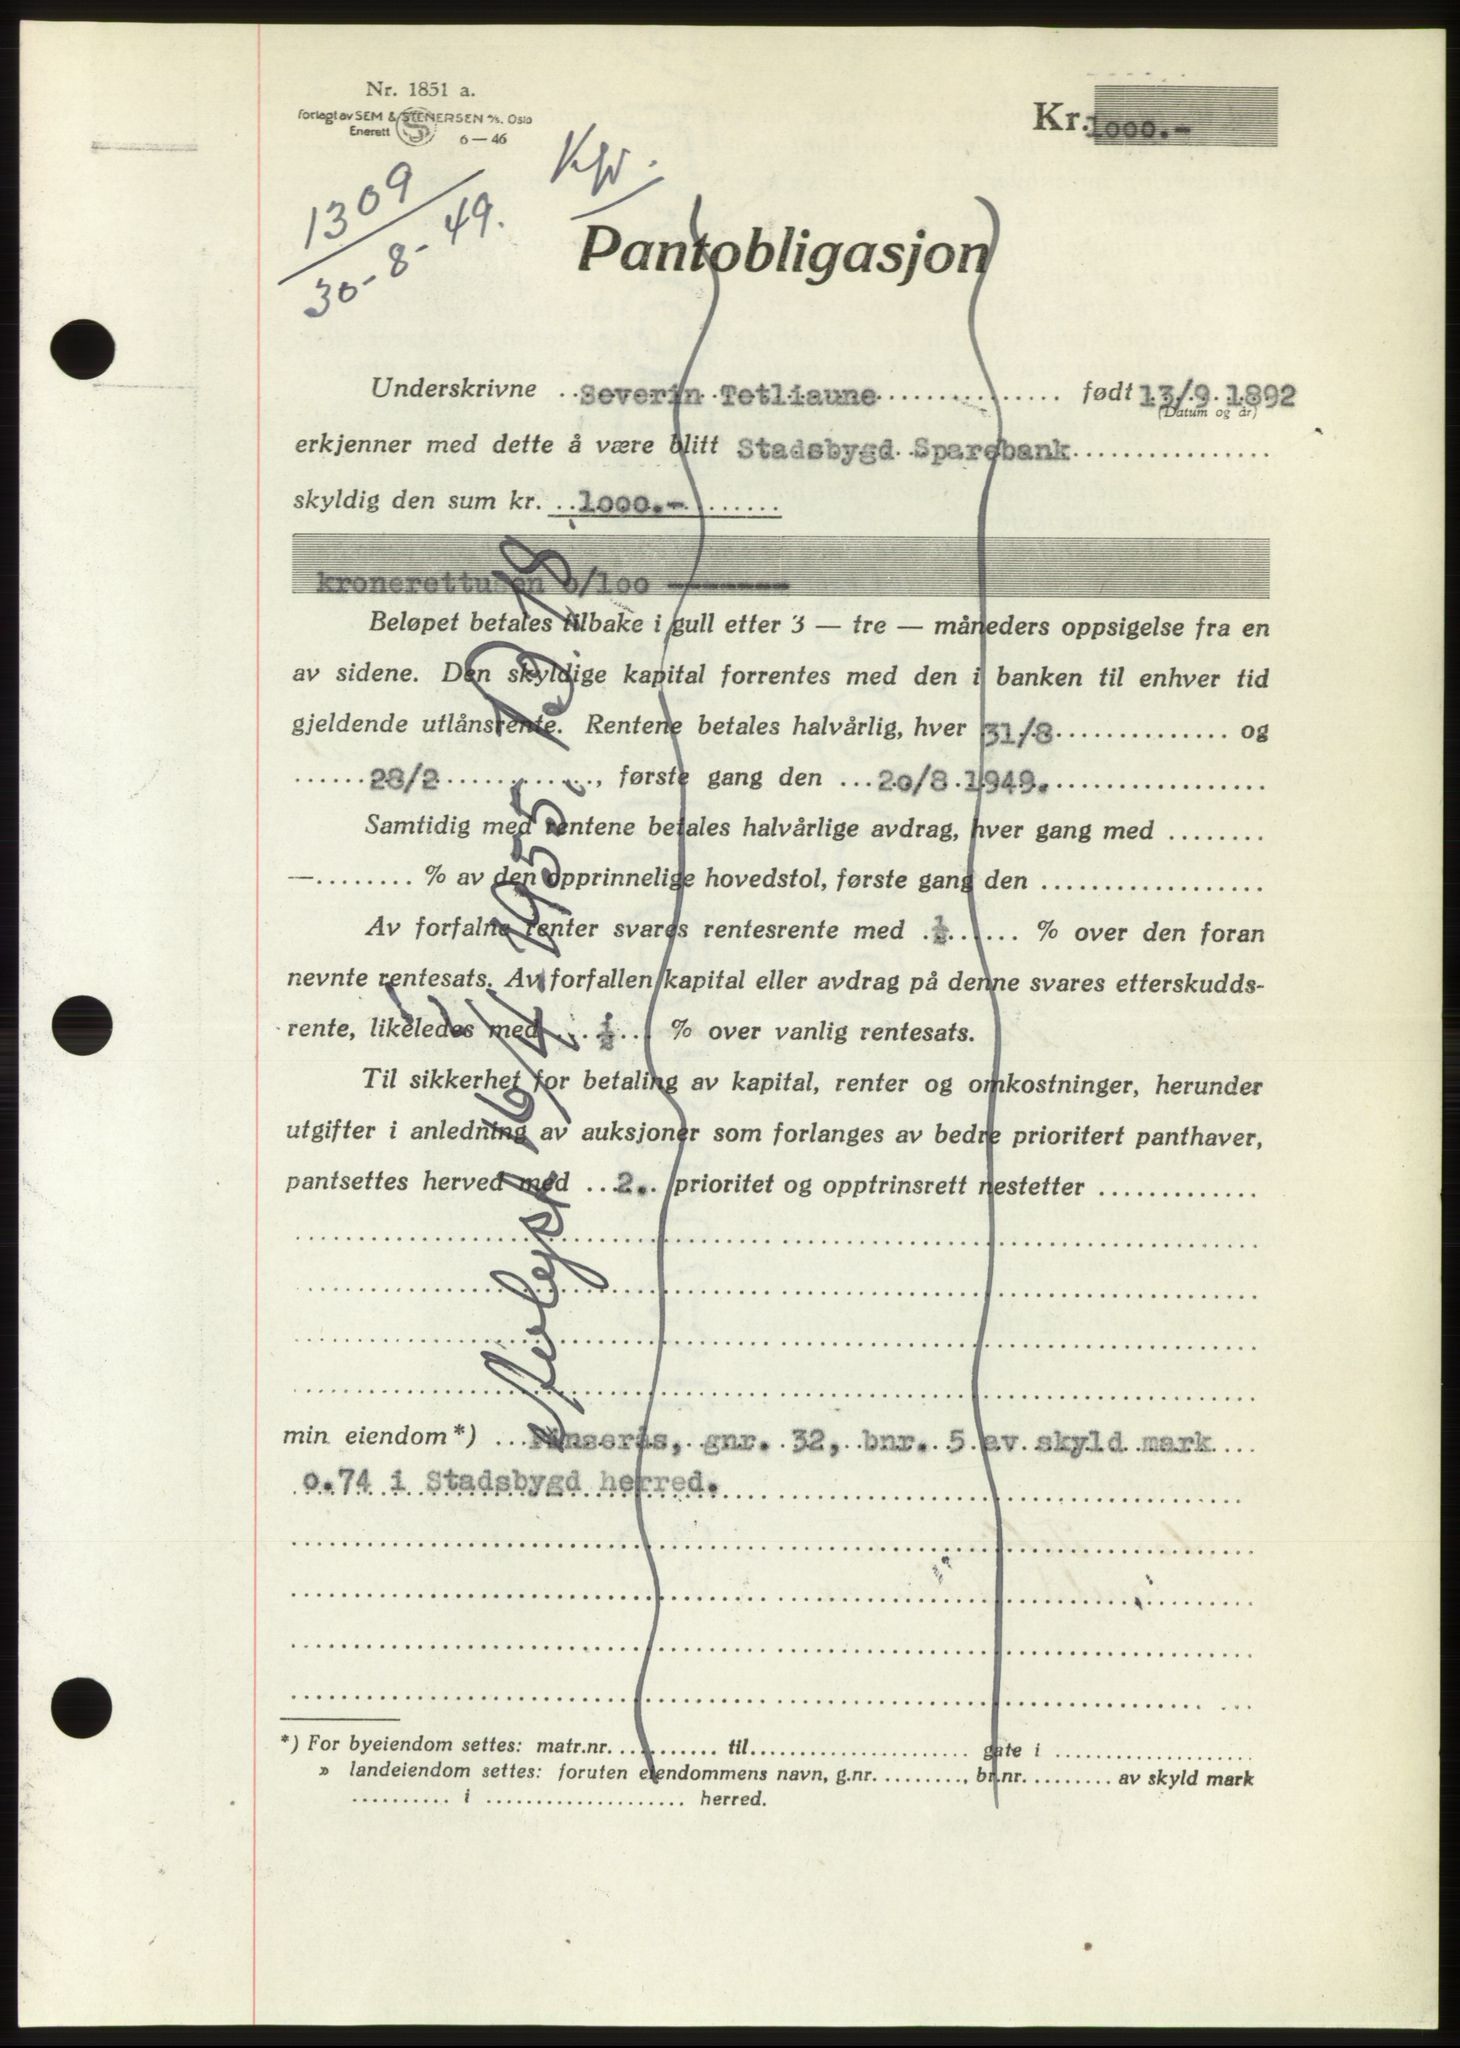 Nr. 1851 a.
Forlagt av SEM & STENERSEN A/S. Oslo
Enerett
6 — 46
Kr. 1000.-
1309
30-8-49.
Pantobligasjon
Underskrivne Severin Tetliaune født 13/9 1892
(Datum og år)
erkjenner med dette å være blitt Stadsbygd Sparebank
skyldig den sum kr. 1000.-
kronerettusen o/100
Beløpet betales tilbake i gull etter 3 — tre — måneders oppsigelse fra en
av sidene. Den skyldige kapital forrentes med den i banken til enhver tid
gjeldende utlånsrente. Rentene betales halvårlig, hver 31/8 og
28/2, første gang den 20/8 1949.
Samtidig med rentene betales halvårlige avdrag, hver gang med
— % av den opprinnelige hovedstol, første gang den
Av forfalne renter svares rentesrente med ½ % over den foran
nevnte rentesats. Av forfallen kapital eller avdrag på denne svares etterskudds-
rente, likeledes med ½ % over vanlig rentesats.
Til sikkerhet for betaling av kapital, renter og omkostninger, herunder
utgifter i anledning av auksjoner som forlanges av bedre prioritert panthaver,
pantsettes herved med 2. prioritet og opptrinsrett nestetter
min eiendom*) gnr. 32, bnr. 5 av skyld mark
o.74 i Stadsbygd herred.
*) For byeiendom settes: matr.nr. til gate i
» landeiendom settes: foruten eiendommens navn, g.nr. , br.nr. av skyld mark
i herred.
Avlyst 16/4 1955.